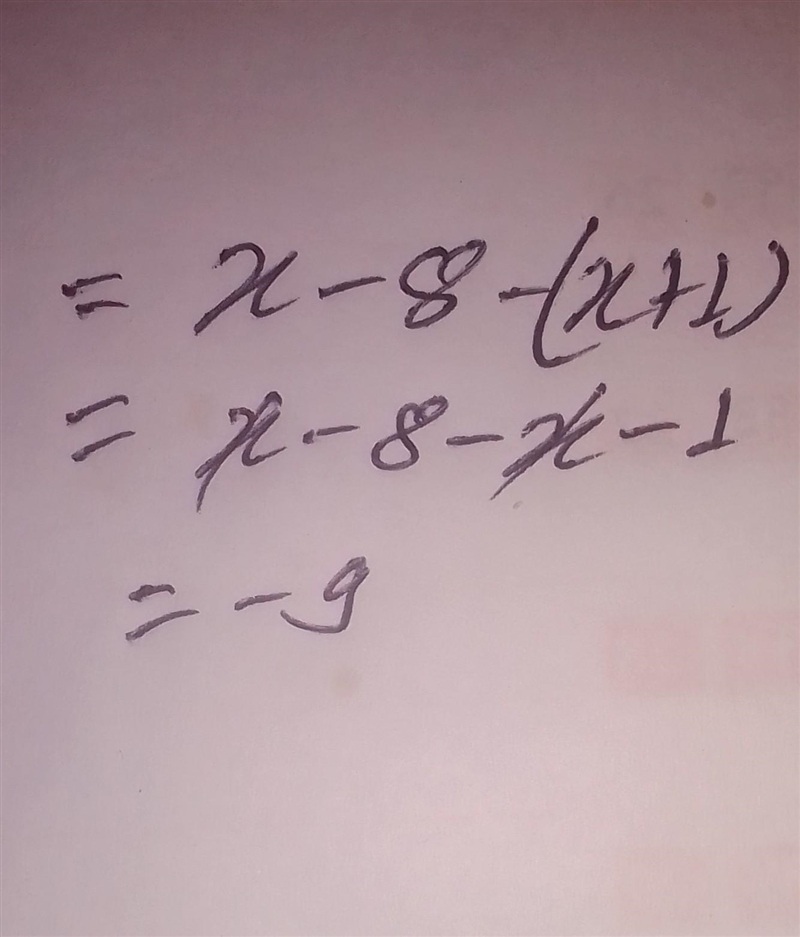 = x - 8 - (x + 1)
= x - 8 - x - 1
= - 9